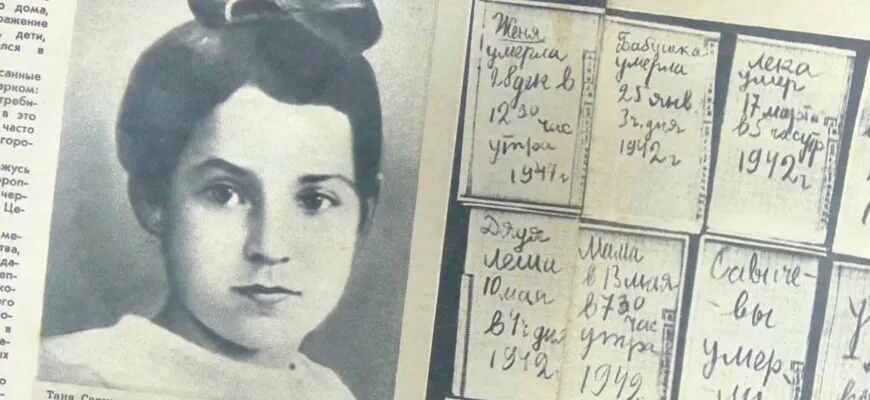 о дома,
ражение
дети,
лся в
санные
арком:
треби-
в это
часто
горо-
жусь
ороп-
чер-
Це-
ме-
ства,
да-
еп-
ко-
его
о-
в
а-
ых
о
е
Таня
Женя
умерла
28 дек в
12 30 час
утра
1941 г
Бабушка
умерла
25 янв.
3 ч. дня
1942 г
Лека
умер
17 марта
в 5 час утр
1942 г
Дядя
Леша
10 мая
в 4 ч дня
1942 г
Мама
в 13 мая
в 7 30
час
утра
1942
Савиче-
вы
умер-
ли
У